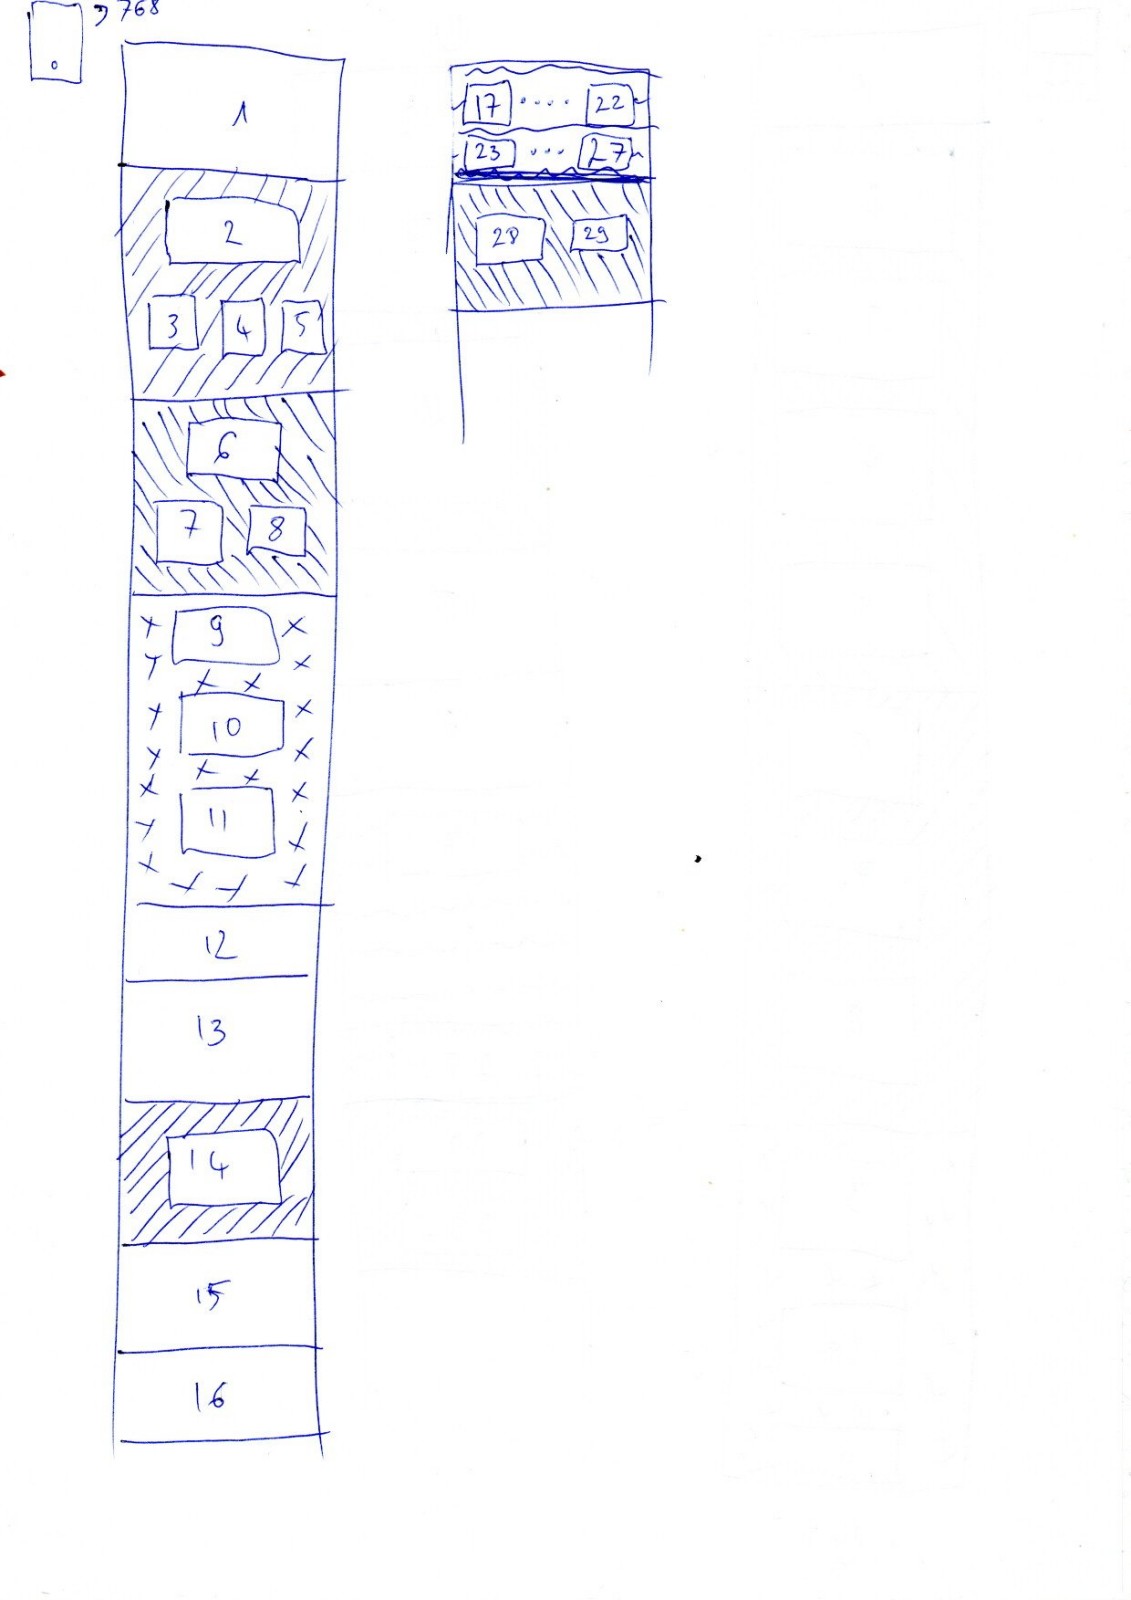 > 768
1
2
3 4 5
6
7 8
9
10
11
12
13
14
15
16
17 .... 22
23 ... 27
28 29